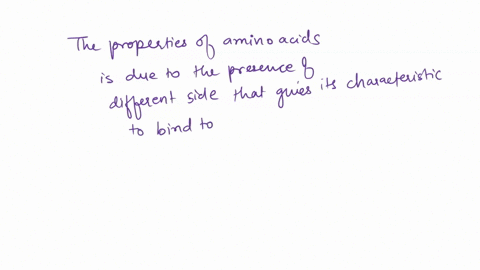 The properties of amino acids
is due to the presence of
different side that gives its characteristic
to bind to